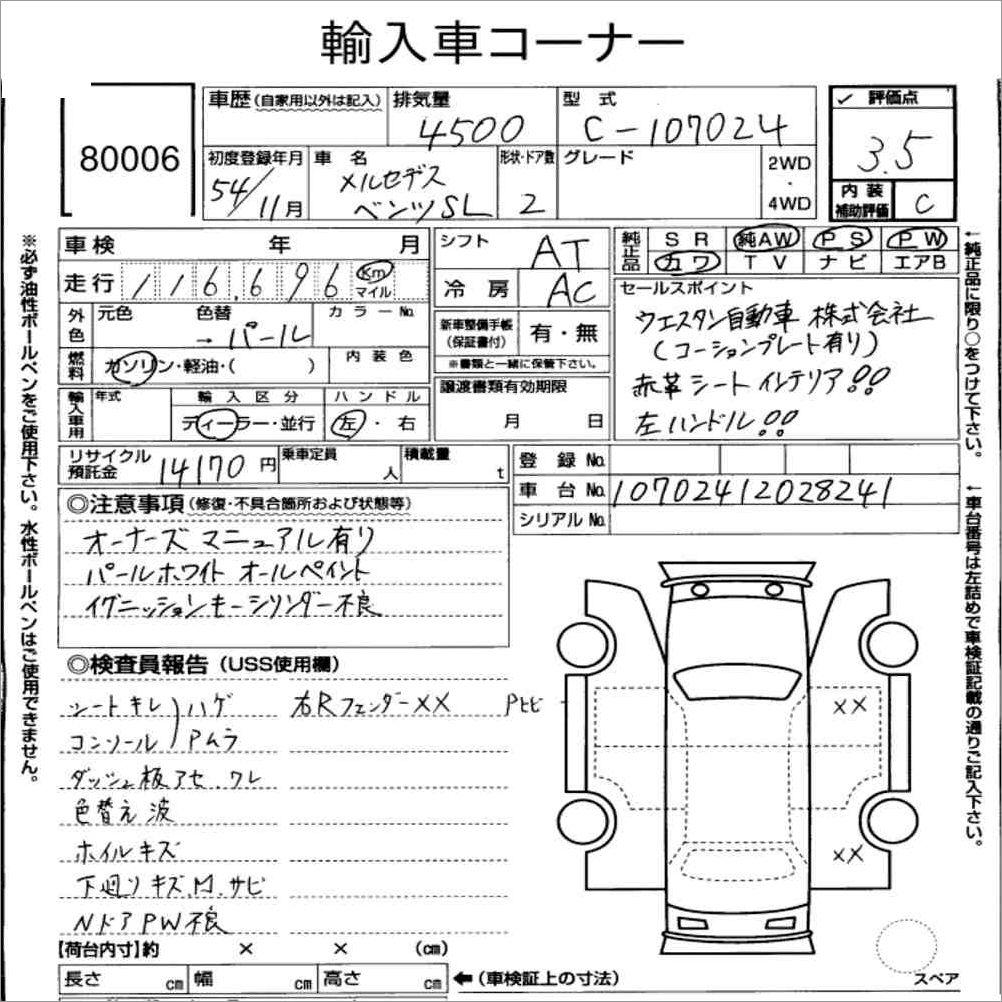 輸入車コーナー
80006
車歴(自家用以外は記入) 排気量 型式 ✓ 評価点
4500 C-107024 3.5
初度登録年月 車名 形状・ドア数 グレード 2WD・4WD 内装補助評価 C
54/11月 メルセデス
ベンツSL 2
※必ず油性ボールペンをご使用下さい。水性ボールペンはご使用できません。
車検 年 月
走行 116,696 Km マイル
外色 元色 色替 カラーNo.
→ パール
燃料 ガソリン・軽油・( ) 内装色
輸入車用 年式 輸入区分 ハンドル
ディーラー・並行 左・右
シフト AT
冷房 AC
新車整備手帳(保証書付) 有・無
※書類と一緒に保管下さい。
譲渡書類有効期限
月 日
純正品 SR 純AW PS PW
カワ TV ナビ エアB
セールスポイント
ウエスタン自動車 株式会社
(コーションプレート有り)
赤革シートインテリア!!
左ハンドル!!
←純正品に限り○をつけて下さい。
リサイクル預託金 14170円 乗車定員 人 積載量 t
登録No.
車台No. 10702412028241
シリアルNo.
←車台番号は左詰めで車検証記載の通りご記入下さい。
◎注意事項(修復・不具合箇所および状態等)
オーナーズマニュアル有り
パールホワイト オールペイント
イグニッションキーシリンダー不良
◎検査員報告(USS使用欄)
シートキレ)ハゲ 右Rフェンダー××
コンソール)Pムラ
Pヒビ
ダッシュ板アセ.ワレ
色替え波
ホイルキズ
下廻りキズ.M.サビ
NドアPW不良
××
××
【荷台内寸】約 × × (cm)
長さ cm 幅 cm 高さ cm ←(車検証上の寸法)
スペア